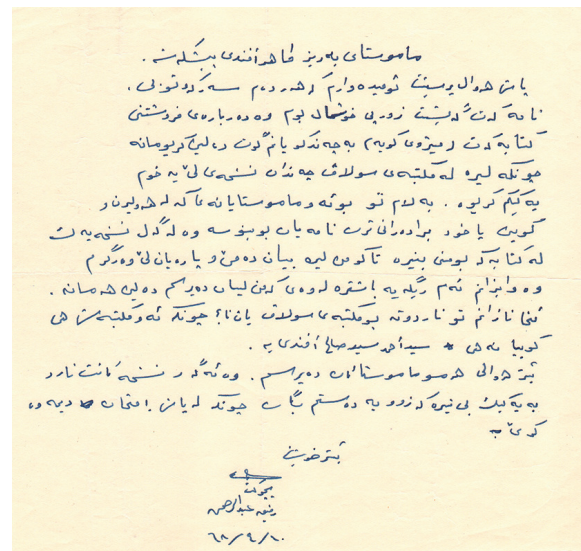 ماموستای بەڕیز طاهر أفندی پیشکەشە .
پاش هەوال پرسیت ئومیدەوارم کە هەردەم سەرکەوتو بی .
نامەکەت گەیشت زورپی خوشحال بوم وە دەربارەی فروشتنی
کتابەکەت رمیزوی کویەم بە چەند کەو یانم گوت دەلین کریومانە
چونکە لیرە لە مکتبەی سولاڤ چەندان نسخەی لی یە خوم
یەکێکم کریوە . بەلام تو بوئەو ماموستایانەی کە لە هەولیرن و
کوین یا خود برادەرانی ترت نامەیان بو بنوسە وە لەگەل نسخەیەک
لە کتابەکە بومنی بنیرە تاکو من لیرە بیان دەمێ و پارەیان لێ وەرگرم
وە وابزانم ئەم ریگەیە باشترە لەوەی کە من لیان دەپرسم دەلین هەمانە .
ئنجا نازانم تو ناردوتە بو مکتبەی سولاڤ یان نا؟ چونکە ئەو مکتبەش هی
کوییا نە هی سید أحمد سید صالح أفندی یە .
بتر هەوالی هەمو ماموستاکان دەپرسم . وە ئەگەر نسخەکانت نارد
بە یەکیک بی نیرە کە زوو بە دەستم بگات چونکە لە پاش امتحان دیمەوە
کوێ یە
بتر خوشیت
بچوکت
عبدالرحمن
٦٨/٤/١٠